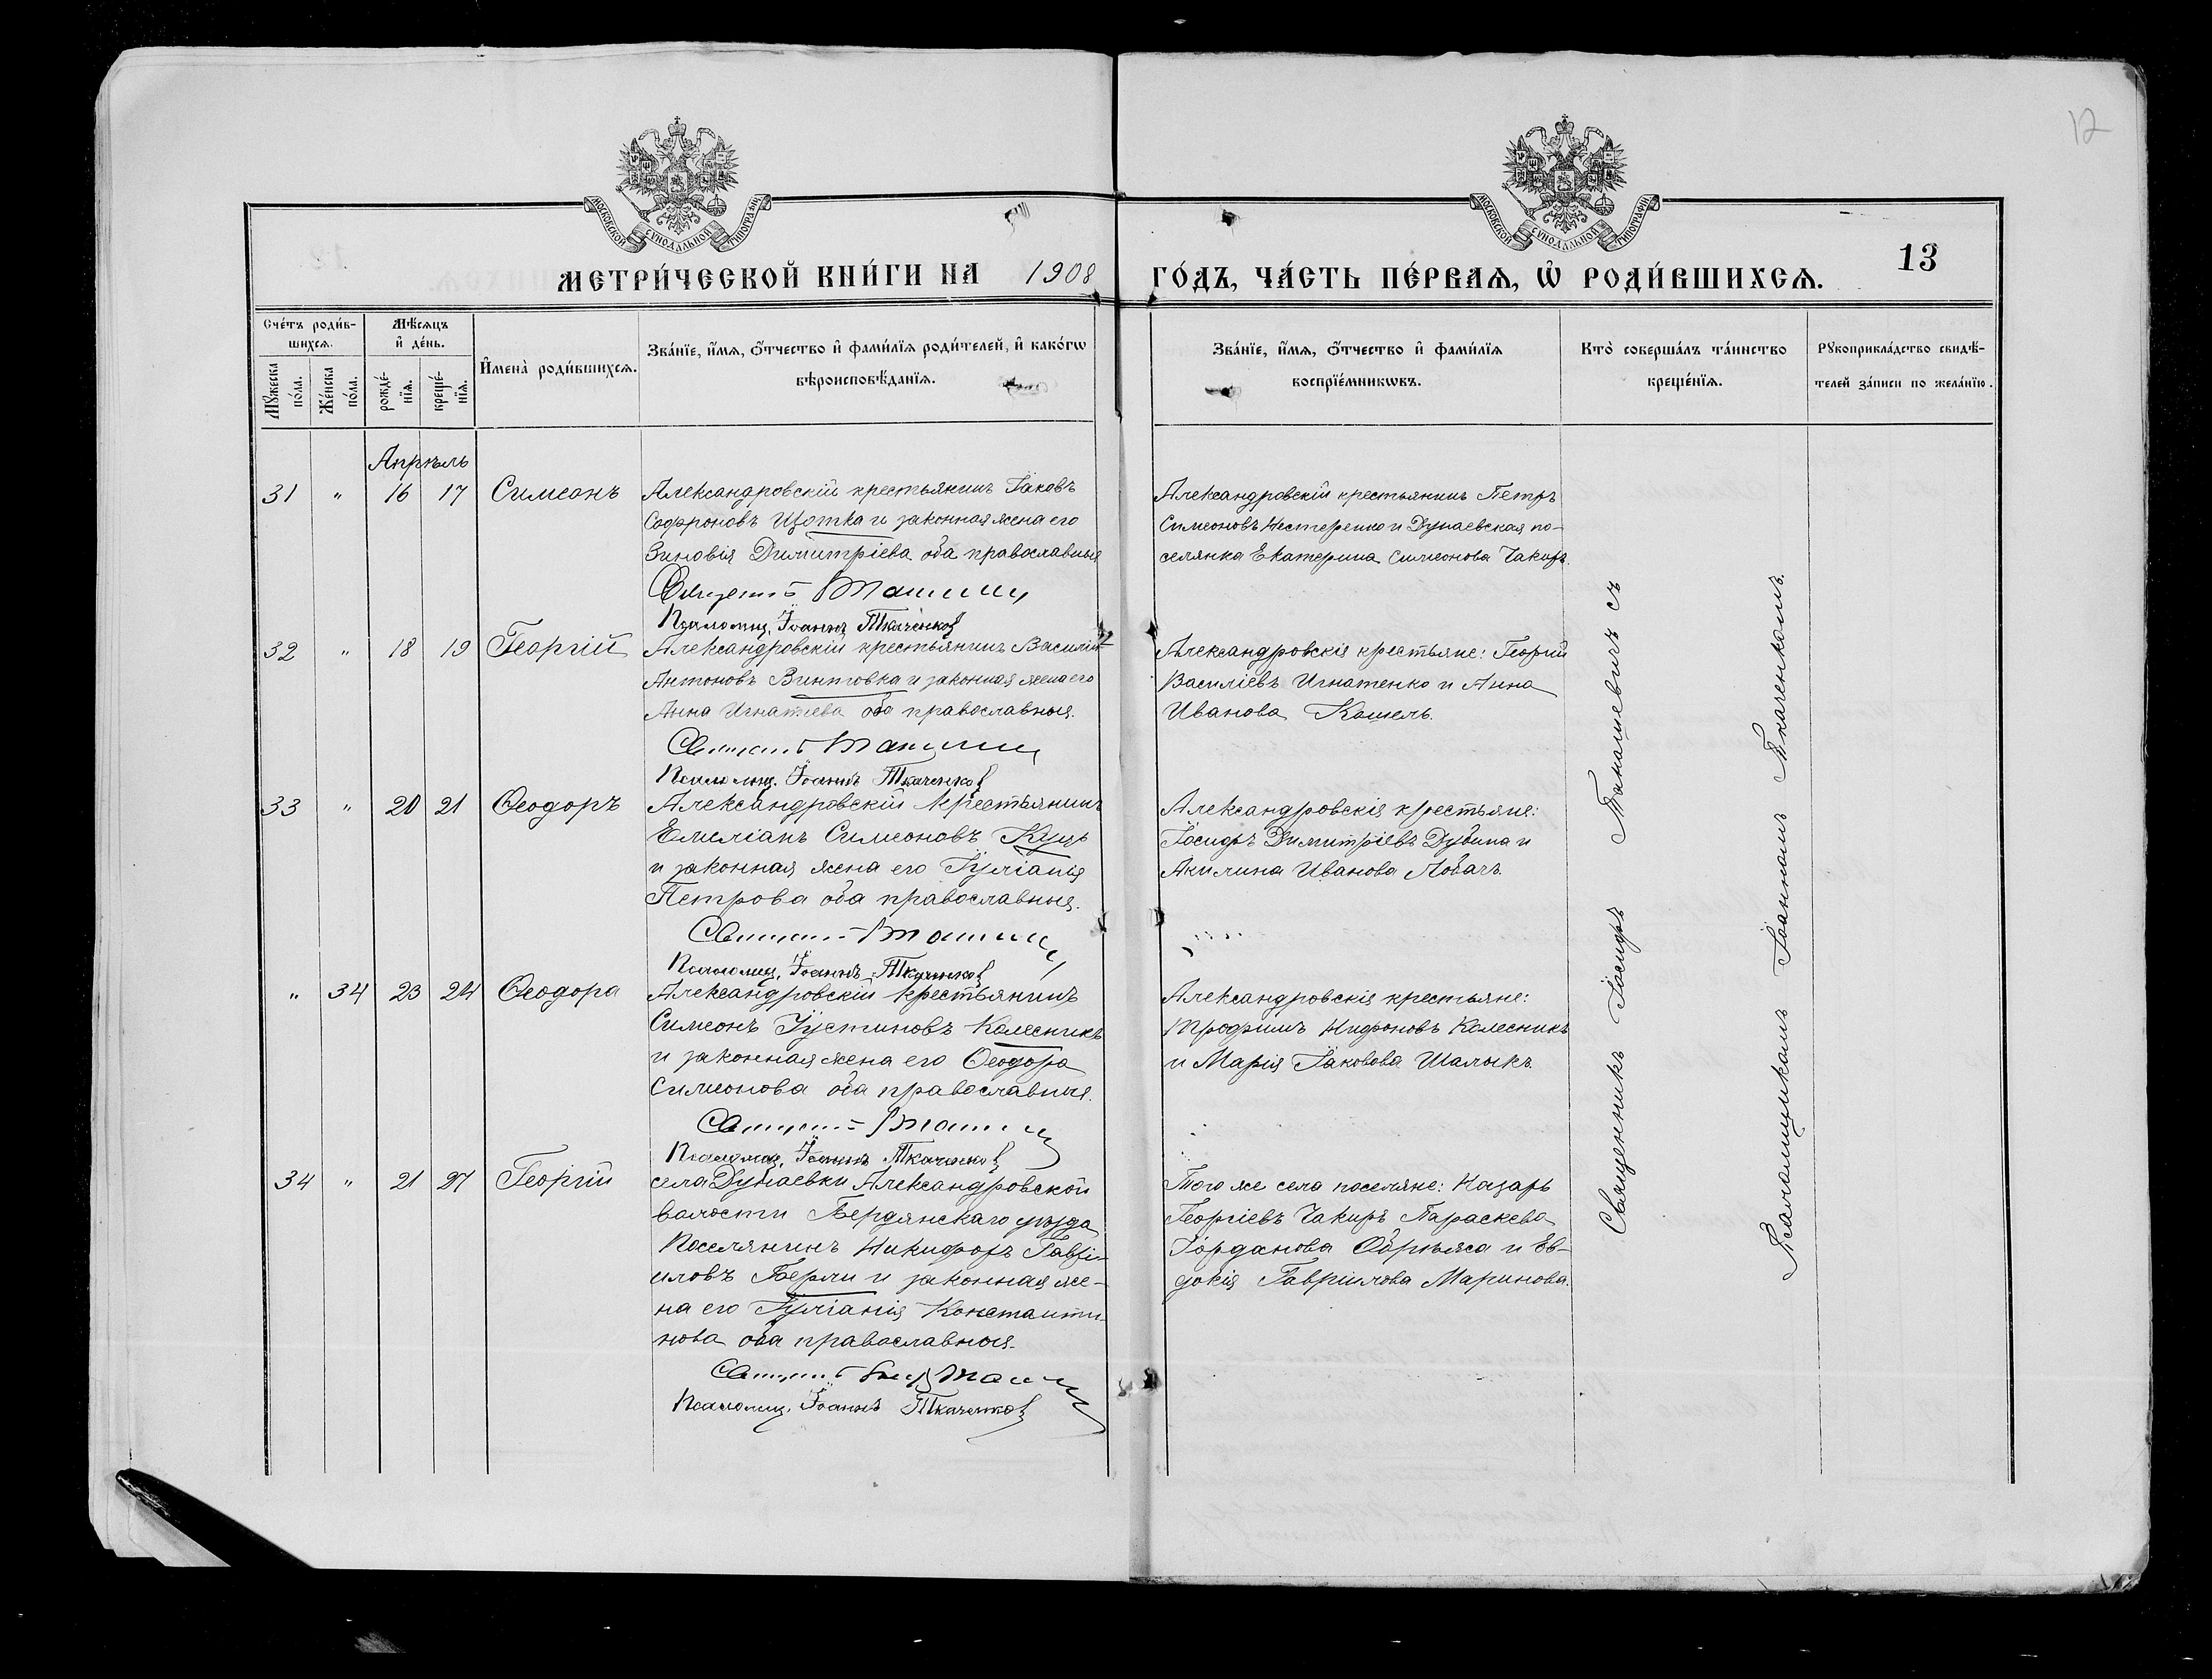 12
МОСКОВСКОЙ СѴНОДАЛЬНОЙ ТИПОГРАФІИ
МОСКОВСКОЙ СѴНОДАЛЬНОЙ ТИПОГРАФІИ
МЕТРИ́ЧЕСКОЙ КНИ́ГИ НА 1908 ГО́ДЪ, ЧА́СТЬ ПЕ́РВАѦ, Ѡ҆ РОДИ́ВШИХСѦ.
13
Сче́тъ роди́в-
шихсѧ.
Мѣ́сѧцъ
и҆ де́нь.
Мꙋ́жеска
по́ла.
Же́нска
по́ла.
рожде́-
нїѧ.
креще́-
нїѧ.
И҆мена̀ роди́вшихсѧ.
Зва́нїе, и҆́мѧ, ѻ҆́тчество и҆ фами́лїѧ роди́телей, и҆ како́гѡ
вѣроисповѣ́данїѧ.
Зва́нїе, и҆́мѧ, ѻ҆́тчество и҆ фами́лїѧ
воспрїе́мникѡвъ.
Кто̀ соверша́лъ та́инство
креще́нїѧ.
Рꙋкоприкла́дство свидѣ́-
телей за́писи по жела́нїю.
Апрѣль
31 " 16 17 Симеонъ
Александровскій крестьянинъ Іаковъ
Софроновъ Щотка и законная жена его
Зиновія Димитріева оба православныя
Псаломщ. Іоаннъ Ткаченко
Александровскій крестьянинъ Петръ
Симеоновъ Нестеренко и Дунаевская по-
селянка Екатерина Симеонова Чакиръ.
32 " 18 19 Георгій
Александровскій крестьянинъ Василій
Антоновъ Винтовка и законная жена его
Анна Игнатіева оба православныя.
Псаломщ. Іоаннъ Ткаченко
Александровскія крестьяне: Георгій
Василіевъ Игнатенко и Анна
Иванова Кошель.
33 " 20 21 Ѳеодоръ
Александровскій крестьянинъ
Емиліанъ Симеоновъ Куць
и законная жена его Іуліанія
Петрова оба православныя.
Псаломщ. Іоаннъ Ткаченко
Александровскія крестьяне:
Іосифъ Димитріевъ Дубина и
Акилина Иванова Ловачъ.
" 34 23 24 Ѳеодора
Александровскій крестьянинъ
Симеонъ Іустиновъ Колесникъ
и законная жена его Ѳеодора
Симеонова оба православныя.
Псаломщ. Іоаннъ Ткаченко
Александровскія крестьяне:
Трофимъ Нифоновъ Колесникъ
и Марія Іаковова Шалыкъ.
34 " 21 27 Георгій
села Дунаевки Александровской
волости Бердянскаго уѣзда
Поселянинъ Никифоръ Гаврі-
иловъ Берли и законная же-
на его Іуліанія Константи-
нова оба православныя.
Псаломщ. Іоаннъ Ткаченко
Того же села поселяне: Назарь
Георгіевъ Чакиръ Параскева
Іорданова и Ев-
докія Гавріилова Маринова.
Священникъ Іосифъ Танашевичъ съ
Псаломщикомъ Іоанномъ Ткаченкомъ.